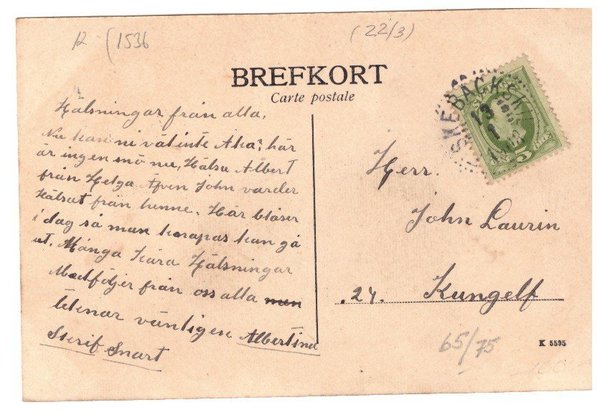 R (1536
(22/3)
BREFKORT
Carte postale
Hälsningar från alla,
Nu kan ni väl inte Åka, här
är ingen snö nu, Hälsa Albert
från Helga Äfven John varder
hälsat från henne, Här blåser
i dag så man knapas kan gå
ut. Många Kära Hälsningar
Medföljer från oss alla
tecknar vänligen Albertina
Skrif Snart
SKEBÄCK
13
1
5
Herr.
John Laurin
.24. Kungelf
65/75
K 5595